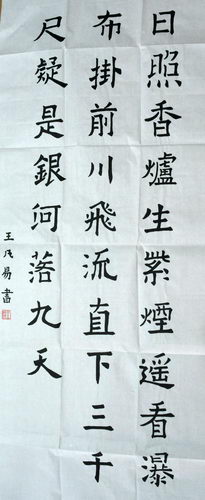 日照香爐生紫煙遥看瀑
布掛前川飛流直下三千
尺疑是銀河落九天
王氏易書